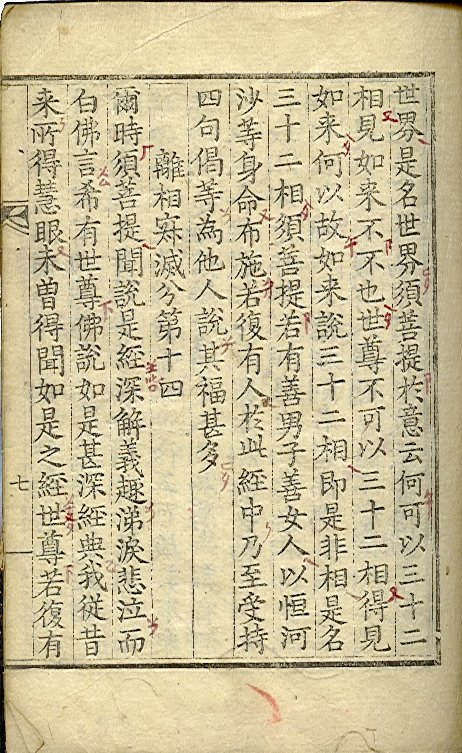 世界是名世界須菩提於意云何可以三十二
相見如来不不也世尊不可以三十二相得見
如来何以故如来說三十二相即是非相是名
三十二相須菩提若有善男子善女人以恒河
沙等身命布施若復有人於此經中乃至受持
四句偈等為他人說其福甚多
離相寂滅分第十四
爾時須菩提聞說是經深解義趣涕淚悲泣而
白佛言希有世尊佛說如是甚深經典我從昔
来所得慧眼未曾得聞如是之經世尊若復有
七